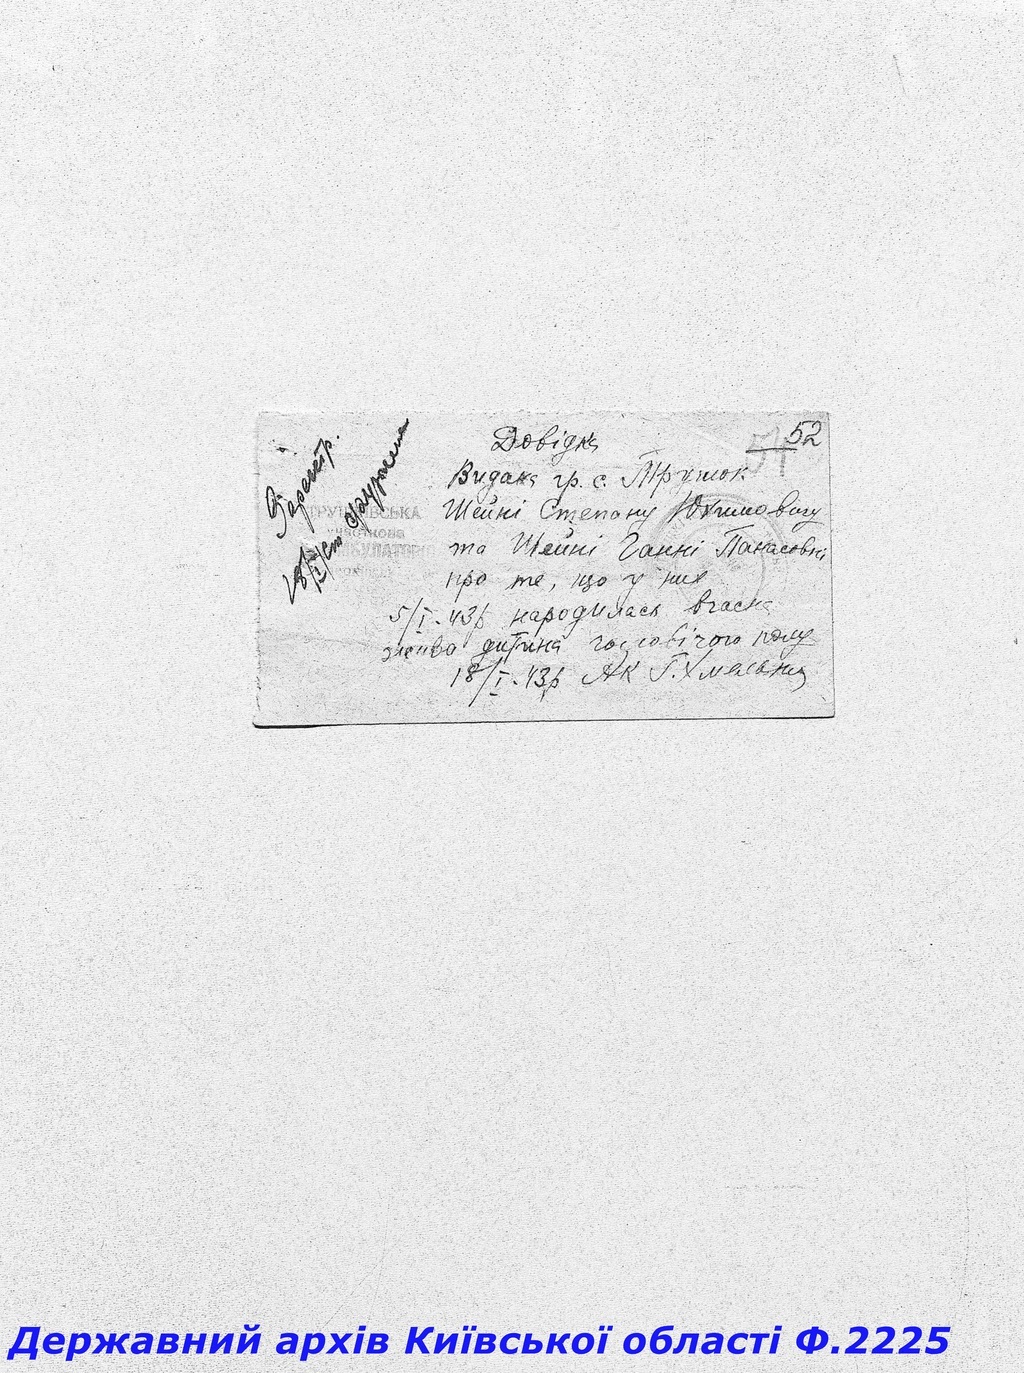 52
54
Довідка
Видана гр. с. Трушок
Шейні Степану Юхимовичу
та Шейні Ганні Панасовні
про те, що у них
5/I-43р народилась вчасна
жива дитина чоловічого полу
18/I-43р АК Г. Хмельниц
Зареєстр.
18/I
ТРУШКІВСЬКА
дільнична
АМБУЛАТОРІЯ
Державний архів Київської області Ф.2225